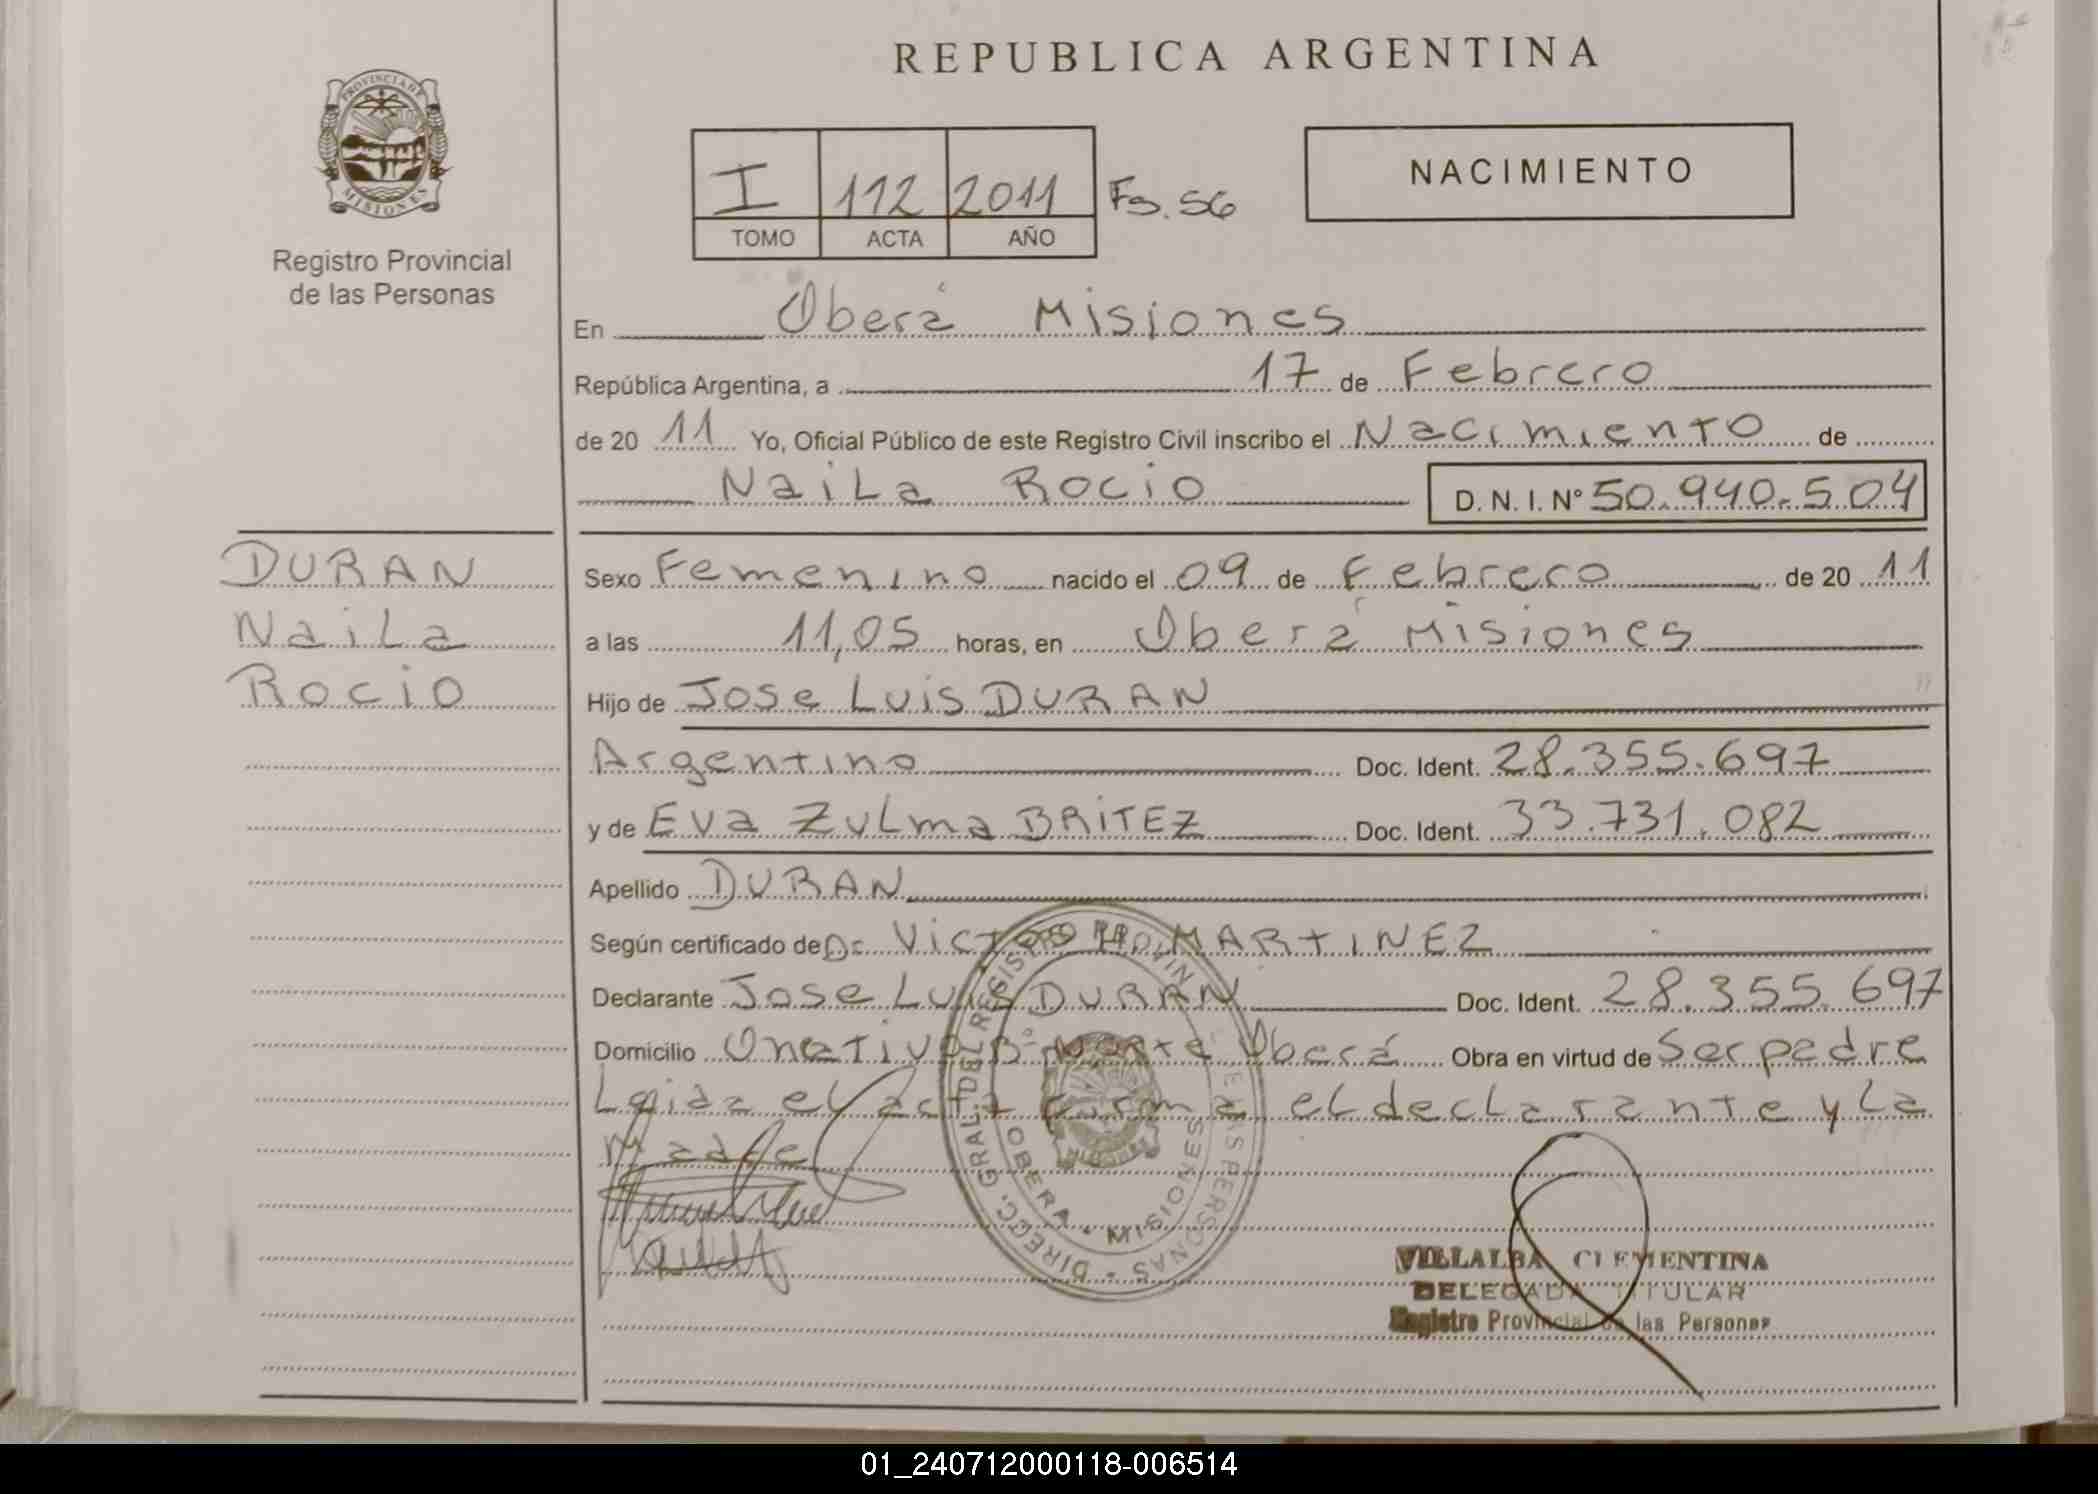 REPUBLICA ARGENTINA
PROVINCIA DE MISIONES
Registro Provincial
de las Personas
I 112 2011 Fs. 56
TOMO ACTA AÑO
NACIMIENTO
En Oberá Misiones
República Argentina, a 17 de Febrero
de 20 11 Yo, Oficial Público de este Registro Civil inscribo el Nacimiento de
Naila Rocio D. N. I. N° 50.940.504
DURAN
Naila
Rocio
Sexo Femenino nacido el 09 de Febrero de 20 11
a las 11,05 horas, en Oberá Misiones
Hijo de Jose Luis DURAN
Argentino Doc. Ident. 28.355.697
y de Eva Zulma BRITEZ Doc. Ident. 33.731.082
Apellido DURAN
Según certificado de Dr. Victor MARTINEZ
Declarante Jose Luis DURAN Doc. Ident. 28.355.697
Domicilio Oberá Obra en virtud de Ser padre
Leida el acta firma el declarante y la
Madre
DIRECC. GRAL. DEL REGISTRO PROVIN DE LAS PERSONAS
OBERA - MISIONES
VILLALBA CLEMENTINA
DELEGADA TITULAR
Registro Provincial de las Personas
01_240712000118-006514